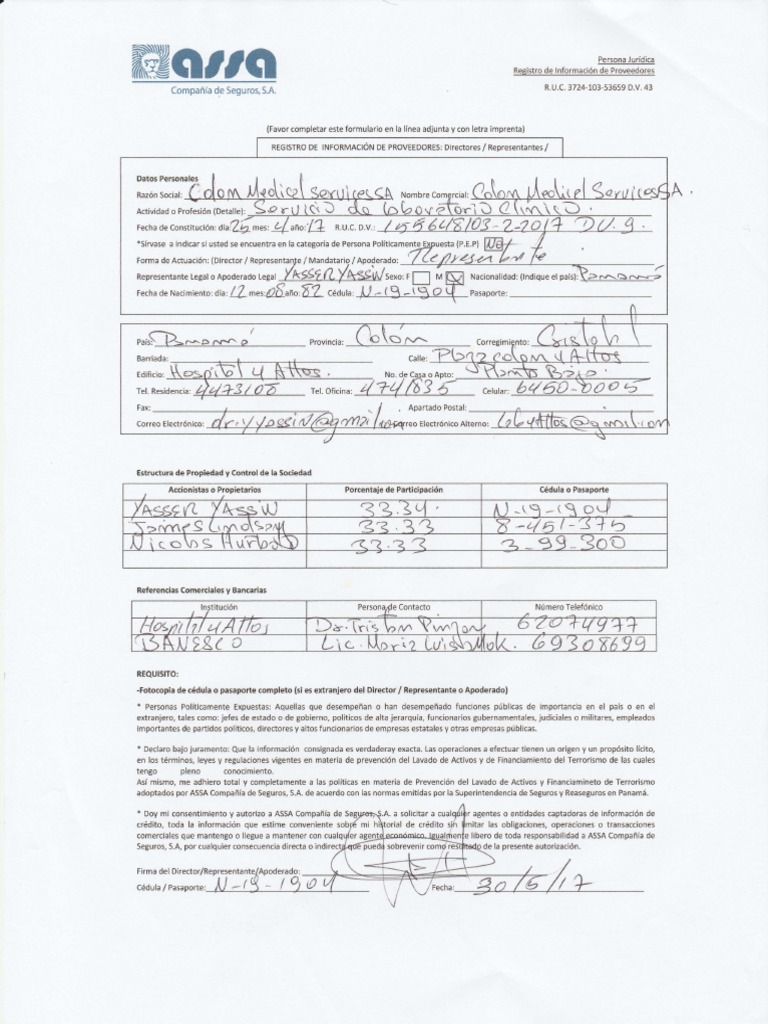 assa
Compañía de Seguros, S.A.
Persona Jurídica
Registro de Información de Proveedores
R.U.C. 3724-103-53659 D.V. 43
(Favor completar este formulario en la línea adjunta y con letra imprenta)
REGISTRO DE INFORMACIÓN DE PROVEEDORES: Directores / Representantes /
Datos Personales
Razón Social: Colon Medicel Services SA Nombre Comercial: Colon Medicel Services SA.
Actividad o Profesión (Detalle): Servicio de Laboratorio Clinico.
Fecha de Constitución: día: 25 mes: 4 año: 17 R.U.C. D.V.: 155648103-2-2017 DV. 9.
*Sírvase a indicar si usted se encuentra en la categoría de Persona Políticamente Expuesta (P.E.P) No
Forma de Actuación: (Director / Representante / Mandatario / Apoderado: Representante
Representante Legal o Apoderado Legal YASSER YASSIN Sexo: F M Nacionalidad: (Indique el país): Panamá
Fecha de Nacimiento: día: 12 mes: 08 año: 82 Cédula: N-19-1904 Pasaporte:
País: Panamá Provincia: Colón Corregimiento: Cristobal
Barriada: Calle: Plaza colon 4 Altos
Edificio: Hospital 4 Altos. No. de Casa o Apto: Planta Baja.
Tel. Residencia: 4473108 Tel. Oficina: 4741835 Celular: 6450-0005
Fax: Apartado Postal:
Correo Electrónico: dr.yyassin@gmail.com Correo Electrónico Alterno: Lab4Altos@gmail.com
Estructura de Propiedad y Control de la Sociedad
Accionistas o Propietarios Porcentaje de Participación Cédula o Pasaporte
YASSER YASSIN 33.34. N-19-1904
James Lindsay 33.33 8-451-375
Nicolas 33.33 3-99-300
Referencias Comerciales y Bancarias
Institución Persona de Contacto Número Telefónico
Hospital 4 Altos Dr. Tristan Pinzon 62074977
BANESCO Lic. Maria Luisa Mok. 69308699
REQUISITO:
-Fotocopia de cédula o pasaporte completo (si es extranjero del Director / Representante o Apoderado)
* Personas Políticamente Expuestas: Aquellas que desempeñan o han desempeñado funciones públicas de importancia en el país o en el
extranjero, tales como: jefes de estado o de gobierno, políticos de alta jerarquía, funcionarios gubernamentales, judiciales o militares, empleados
importantes de partidos políticos, directores y altos funcionarios de empresas estatales y otras empresas públicas.
* Declaro bajo juramento: Que la información consignada es verdaderay exacta. Las operaciones a efectuar tienen un origen y un propósito lícito,
en los términos, leyes y regulaciones vigentes en materia de prevención del Lavado de Activos y de Financiamiento del Terrorismo de las cuales
tengo pleno conocimiento.
Así mismo, me adhiero total y completamente a las políticas en materia de Prevención del Lavado de Activos y Financiamineto de Terrorismo
adoptados por ASSA Compañía de Seguros, S.A. de acuerdo con las normas emitidas por la Superintendencia de Seguros y Reaseguros en Panamá.
* Doy mi consentimiento y autorizo a ASSA Compañía de Seguros, S.A. a solicitar a cualquier agentes o entidades captadoras de información de
crédito, toda la información que estime conveniente sobre mi historial de crédito sin limitar las obligaciones, operaciones o transacciones
comerciales que mantengo o llegue a mantener con cualquier agente económico. Igualmente libero de toda responsabilidad a ASSA Compañía de
Seguros, S.A, por cualquier consecuencia directa o indirecta que pueda sobrevenir como resultado de la presente autorización.
Firma del Director/Representante/Apoderado:
Cédula / Pasaporte: N-19-1904 Fecha: 30/5/17